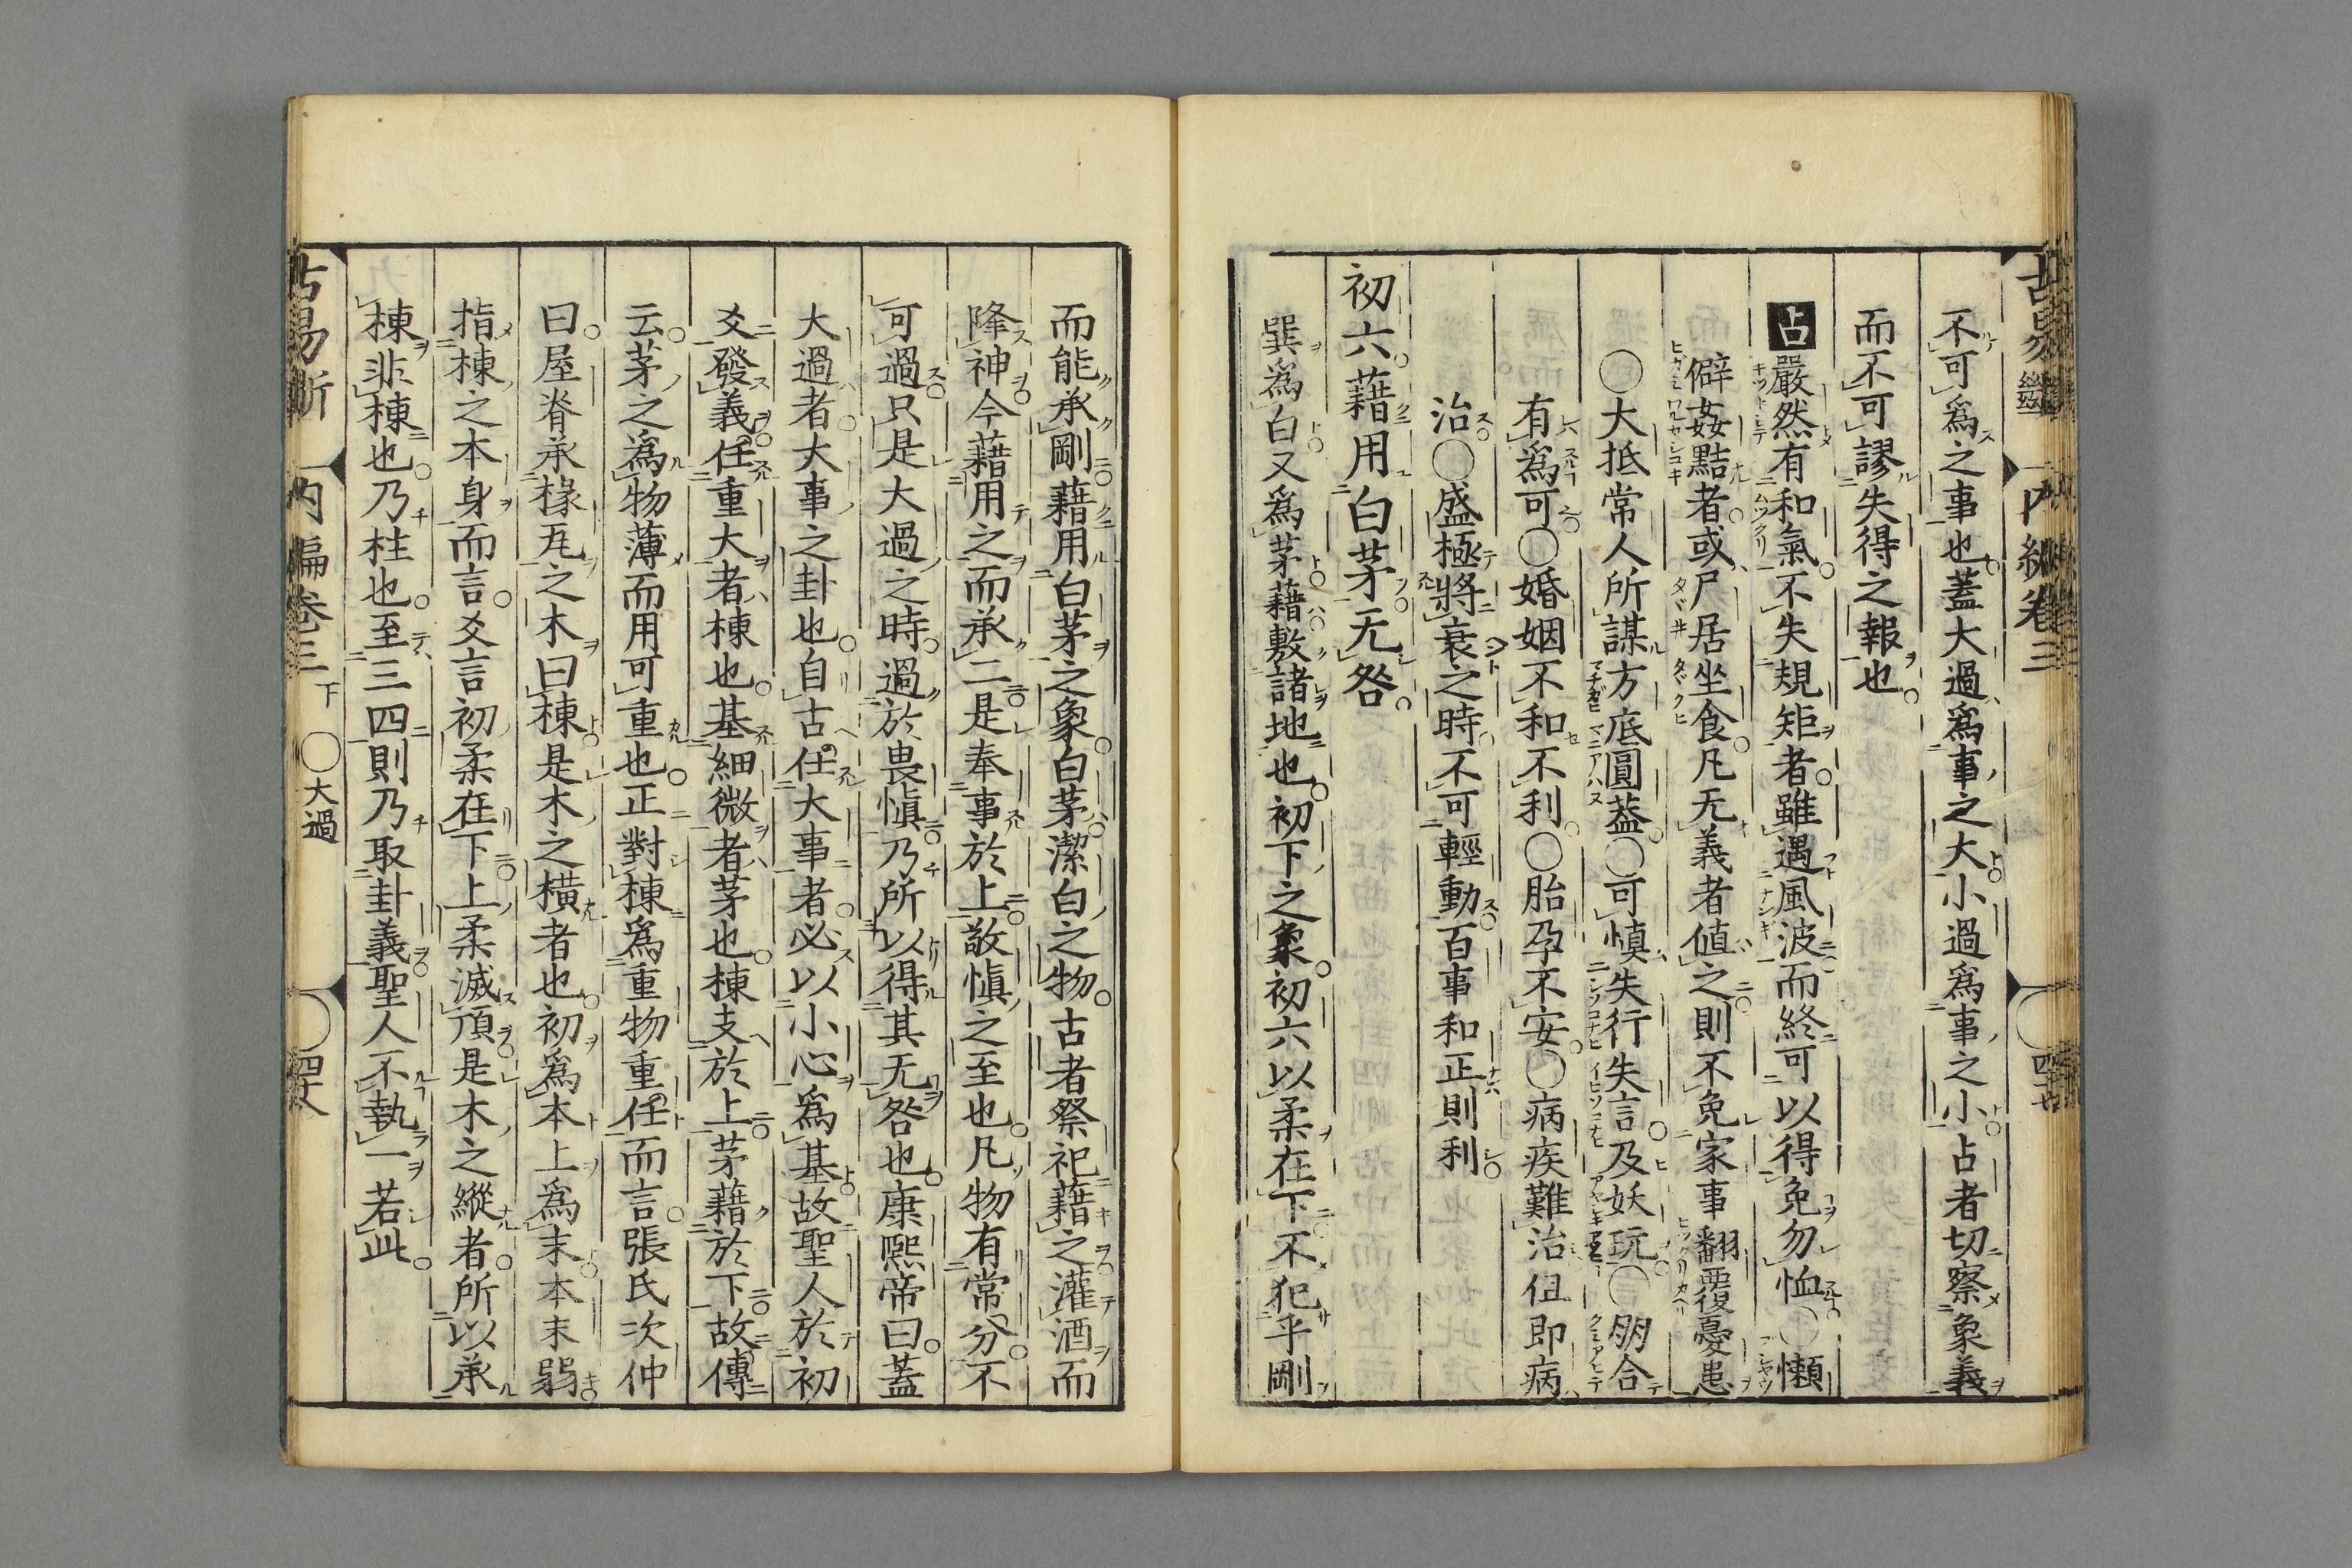 不可爲之事也蓋大過爲事之大小過爲事之小占者切察象義
而不可謬失得之報也
占嚴然有和氣不失規矩者雖遇風波而終可以得免勿恤○懶
僻姦黠者或尸居坐食凡无義者値之則不免家事翻覆憂患
○大抵常人所謀方底圓蓋○可慎失行失言及妖玩○朋合
有爲可○婚姻不和不利○胎孕不安○病疾難治但即病
治○盛極將衰之時不可輕動百事和正則利
初六藉用白茅无咎
巽爲白又爲茅藉敷諸地也初下之象初六以柔在下不犯乎剛
而能承剛藉用白茅之象白茅潔白之物古者祭祀藉之灌酒而
降神今藉用之而承二是奉事於上敬愼之至也凡物有常分不
可過只是大過之時過於畏愼乃所以得其无咎也康熙帝曰蓋
大過者大事之卦也自古任大事者必以小心爲基故聖人於初
爻發義任重大者棟也基細微者茅也棟支於上茅藉於下故傳
云茅之爲物薄而用可重也正對棟爲重物重任而言張氏次仲
曰屋脊承椽瓦之木曰棟是木之橫者也初爲本上爲末本末弱
指棟之本身而言爻言初柔在下上柔滅頂是木之縱者所以承
棟非棟也乃柱也至三四則乃取卦義聖人不執一若此
古易斷 内編卷三下 ○大過 四十八